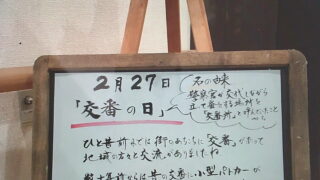 2月27日
「交番の日」
名の由来
警察官が交代しながら
立て番をする場所を
「交番所」と呼んだことから
ひと昔前までは街のあちこちに「交番」があって
地域の方々と交流がありましたね
数十年前からは昔の交番に小型パトカーが